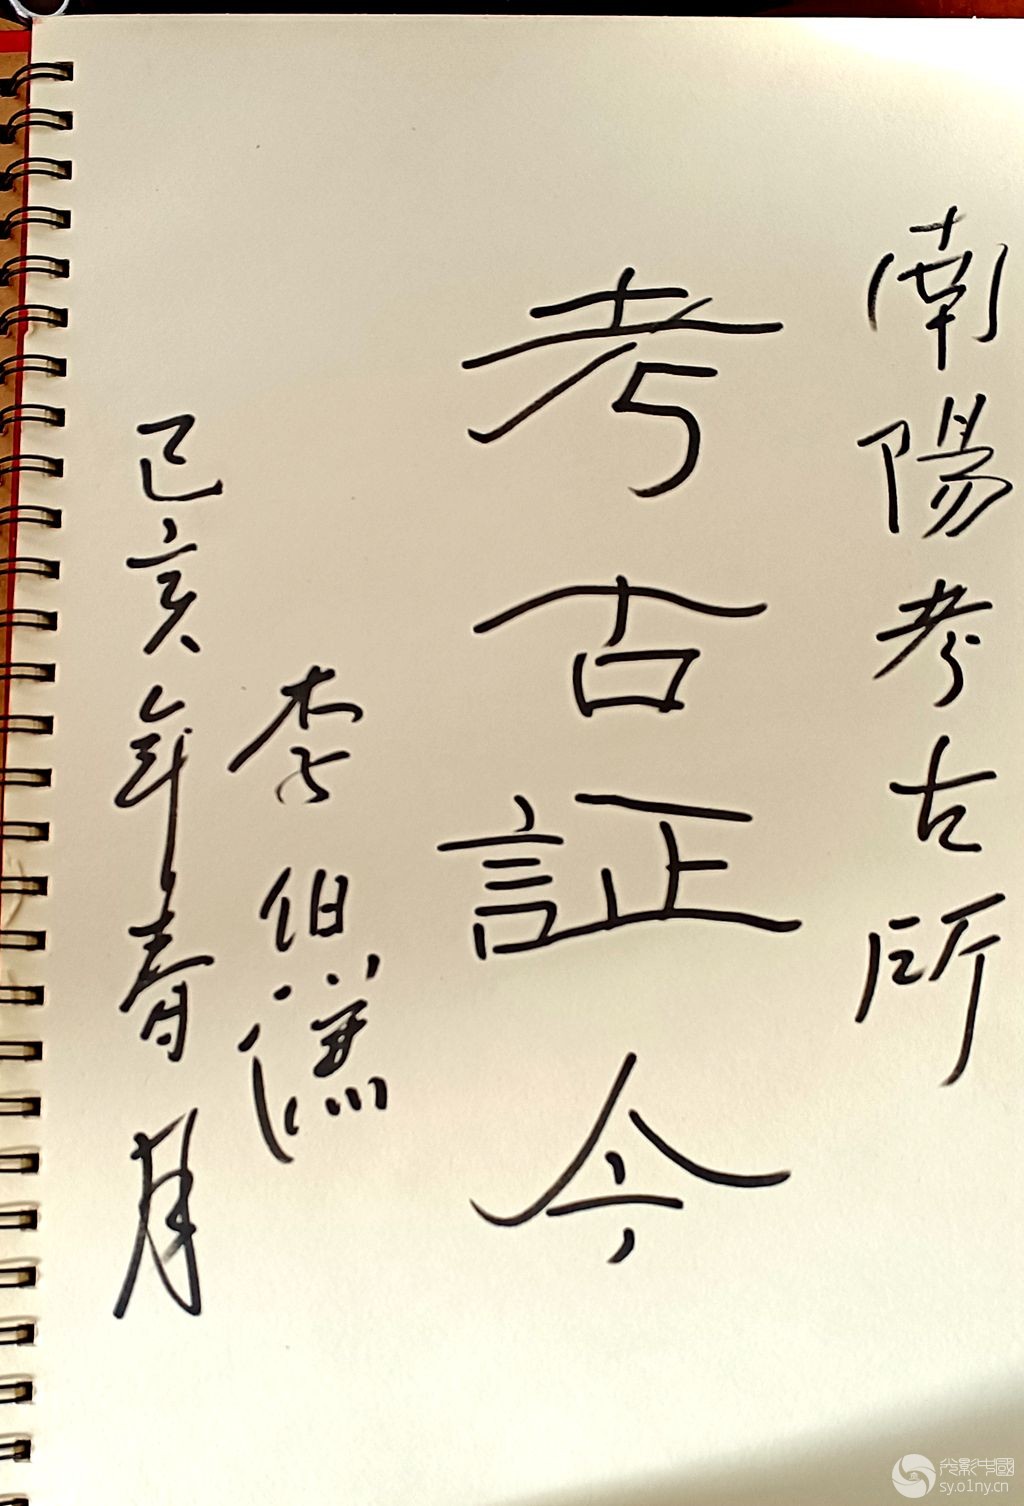 南陽考古所
考古証今
李伯謙
己亥年春月
光影中國
sy.o1ny.cn